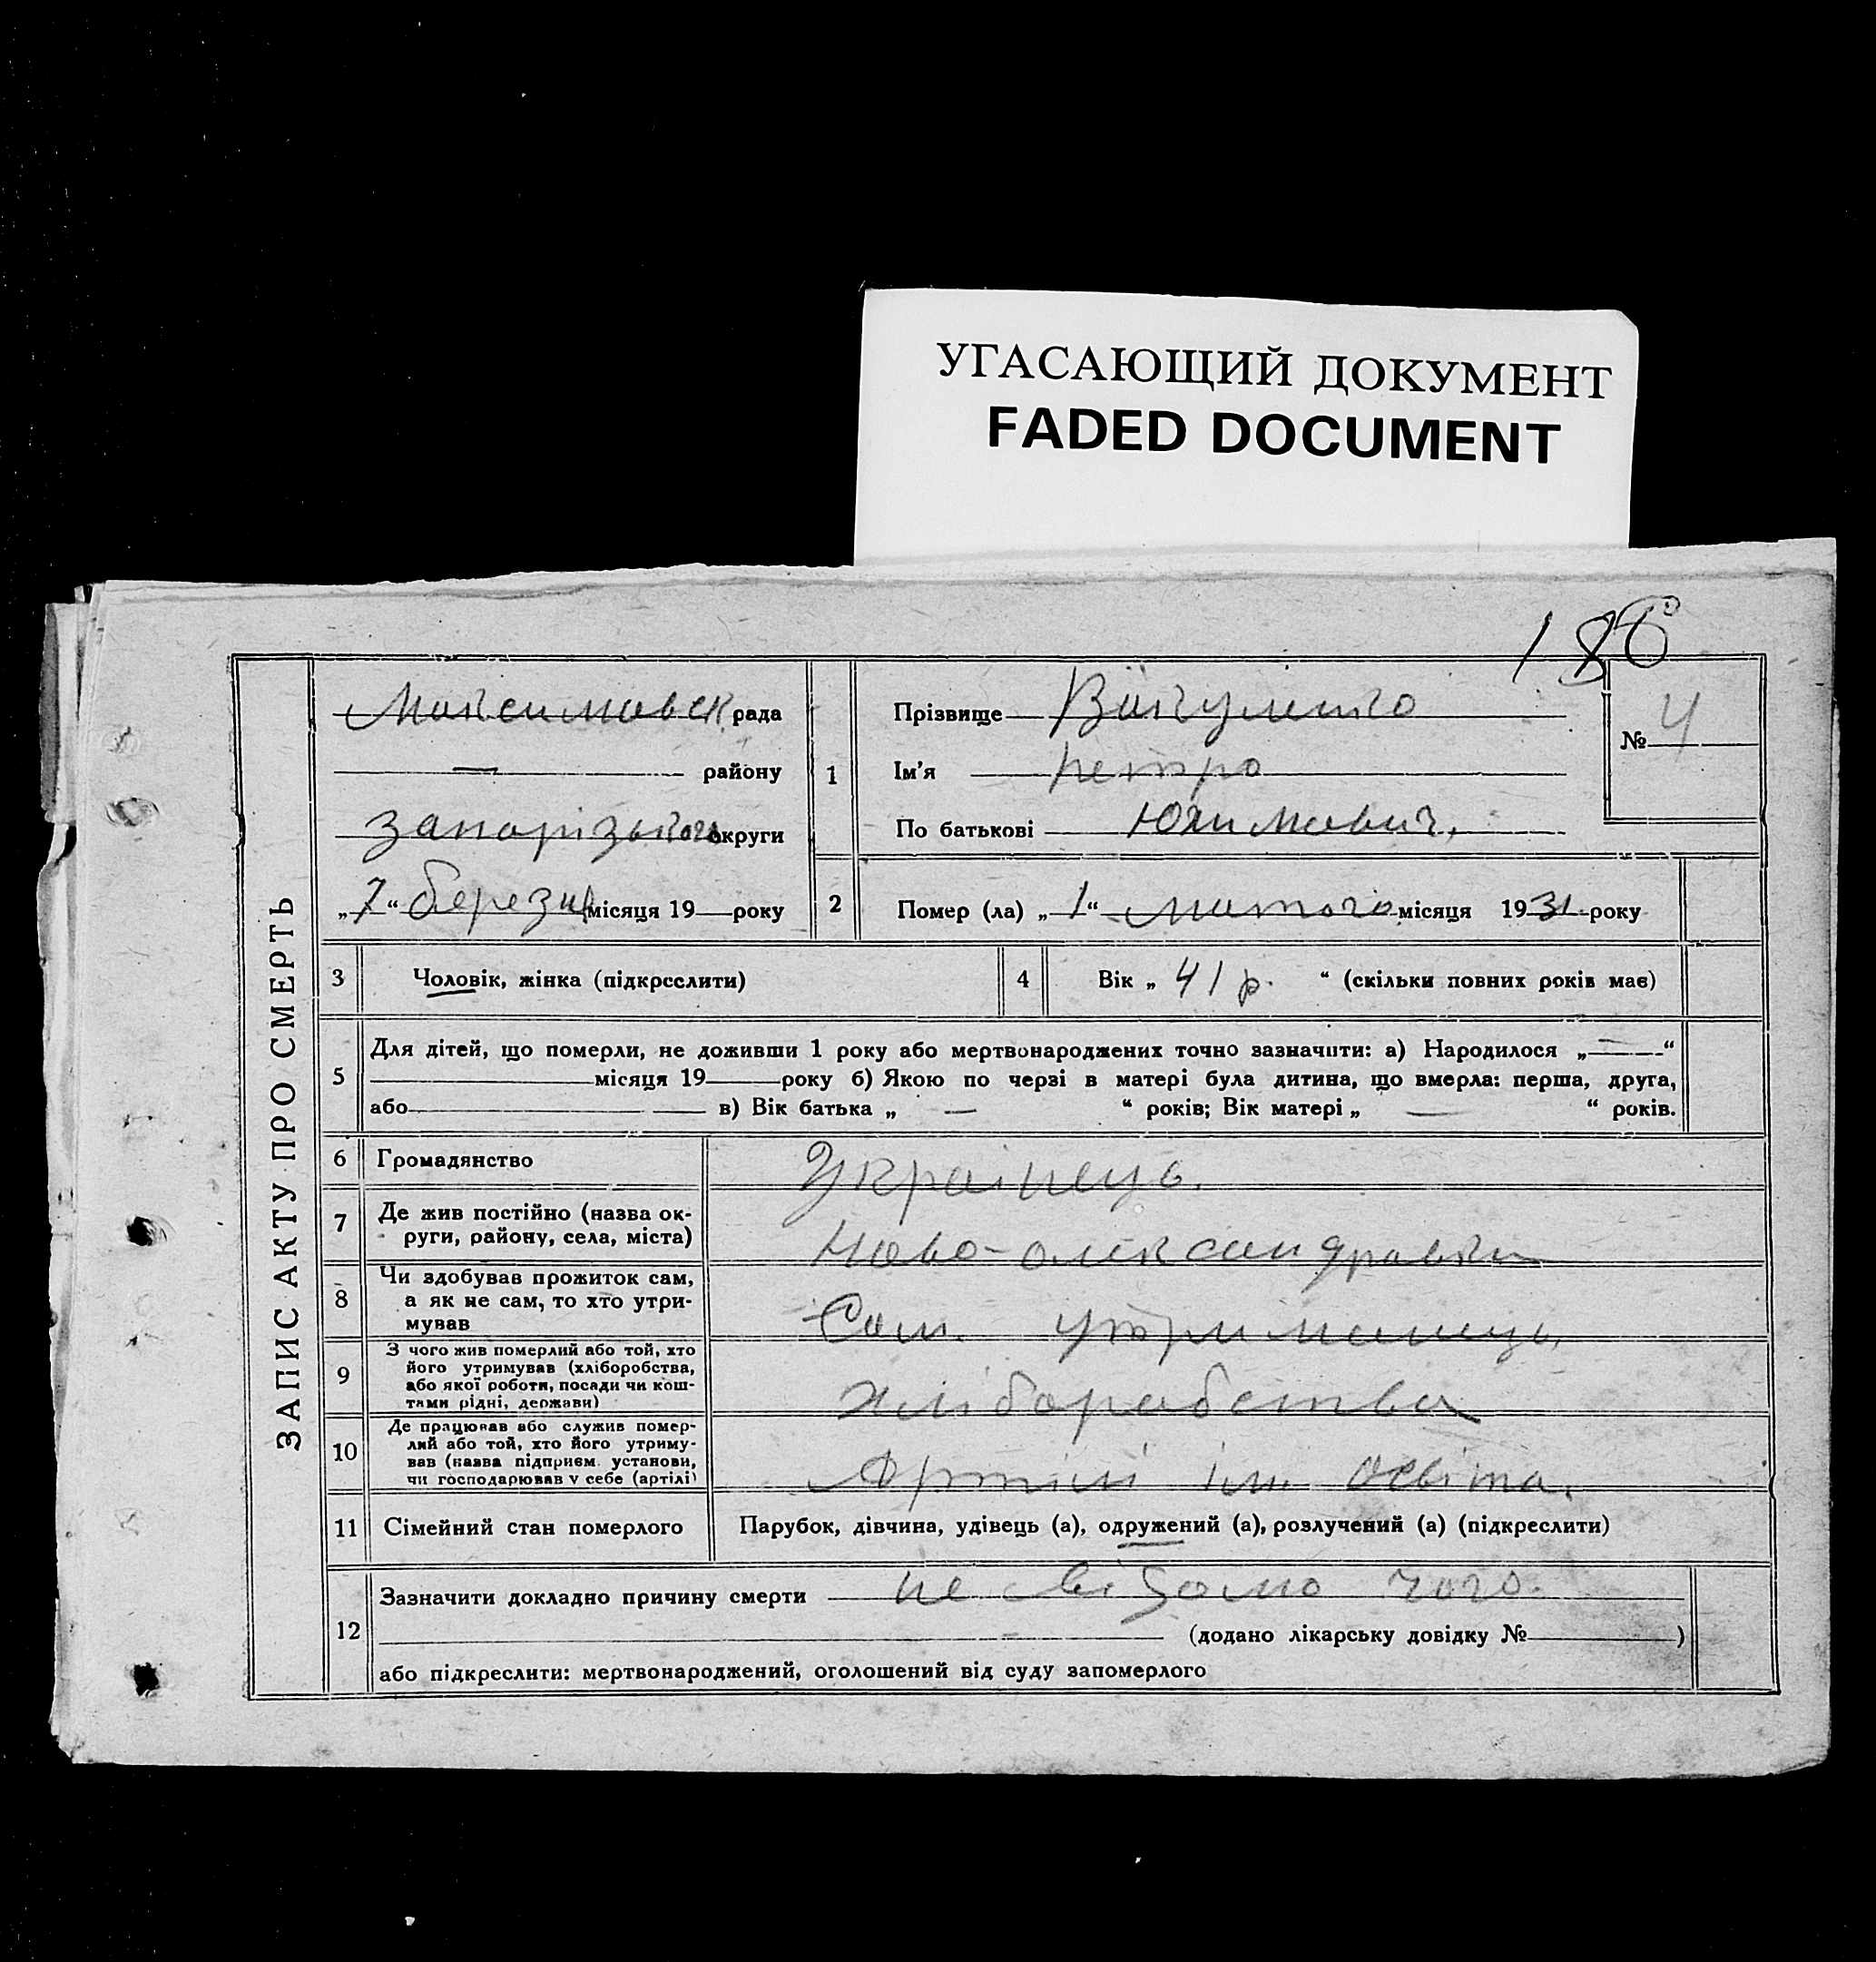 УГАСАЮЩИЙ ДОКУМЕНТ
FADED DOCUMENT
ЗАПИС АКТУ ПРО СМЕРТЬ
Максимовск рада
— району
Запорізького округи
„7“ березня місяця 19 року
1
Прізвище
Ім'я Петро
По батькові Юхимович.
№ 4
2
Помер (ла) „1“ лютого місяця 1931 року
3 Чоловік, жінка (підкреслити)
4 Вік „ 41 р. “ (скільки повних років має)
5
Для дітей, що померли, не доживши 1 року або мертвонароджених точно зазначити: а) Народилося „—“
місяця 19 року б) Якою по черзі в матері була дитина, що вмерла: перша, друга,
або — в) Вік батька „ — “ років; Вік матері „ — “ років.
6 Громадянство Українець.
7 Де жив постійно (назва ок-
руги, району, села, міста) Ново-олександровки
8 Чи здобував прожиток сам,
а як не сам, то хто утри-
мував Сам. утриманець.
9 З чого жив померлий або той, хто
його утримував (хліборобства,
або якої роботи, посади чи кош-
тами рідні, держави) хліборобства
10 Де працював або служив помер-
лий або той, хто його утриму-
вав (назва підприєм. установи,
чи господарював у себе (артілі) Артілі ім. Освіта.
11 Сімейний стан померлого Парубок, дівчина, удівець (а), одружений (а), розлучений (а) (підкреслити)
12
Зазначити докладно причину смерти не відомо чого.
(додано лікарську довідку № )
або підкреслити: мертвонароджений, оголошений від суду запомерлого